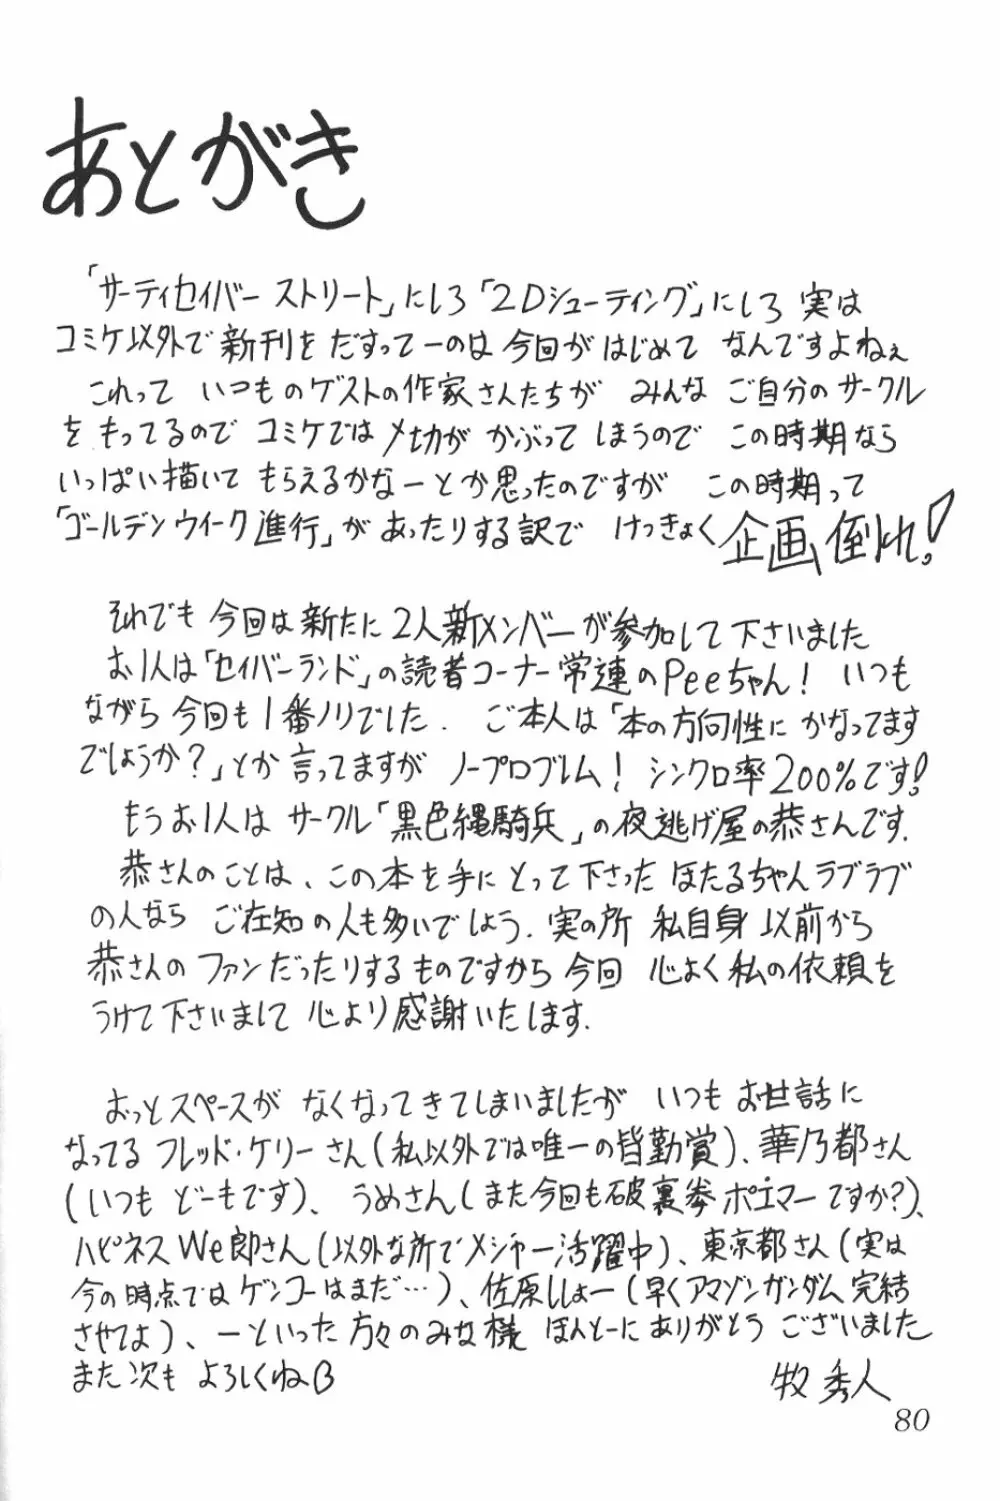 あとがき
「サーティセイバーストリート」にしろ「2Dシューティング」にしろ 実は
コミケ以外で新刊をだすってーのは今回がはじめて なんですよねぇ
これって いつものゲストの作家さんたちが みんな ご自分のサークル
をもってるので コミケでは〆切が かぶって しまうので この時期なら
いっぱい描いて もらえるかなーとか思ったのですが この時期って
「ゴールデンウイーク進行」が あったりする訳で けっきょく 企画倒れ!
それでも 今回は新たに2人新メンバーが参加して下さいました
お1人は「セイバーランド」の読者コーナー常連のPeeちゃん! いつも
ながら今回も1番ノリでした. ご本人は「本の方向性に かなってます
でしょうか?」とか 言ってますが ノープロブレム! シンクロ率200%です!
もうお1人は サークル「黒色縄騎兵」の夜逃げ屋の恭さんです.
恭さんのことは、この本を手にとって下さった ほたるちゃんラブラブ
の人なら ご在知の人も多いでしょう. 実の所 私自身 以前から
恭さんの ファンだったりするものですから 今回 心よく私の依頼を
うけて下さいまして 心より感謝いたします.
おっとスペースが なくなってきてしまいましたが いつも お世話に
なってる フレッド・ケリーさん(私以外では唯一の皆勤賞)、華乃都さん
(いつも どーもです)、うめさん(また今回も破裏拳ポエマーですか?)、
ハピネスWe郎さん(以外な所でメジャー活躍中)、東京都さん(実は
今の時点ではゲンコーはまだ…)、佐原ししょー(早くアマゾンガンダム完結
させてよ)、ーといった方々のみな様 ほんとーにありがとうございました
また次も よろしくね
牧 秀人
80